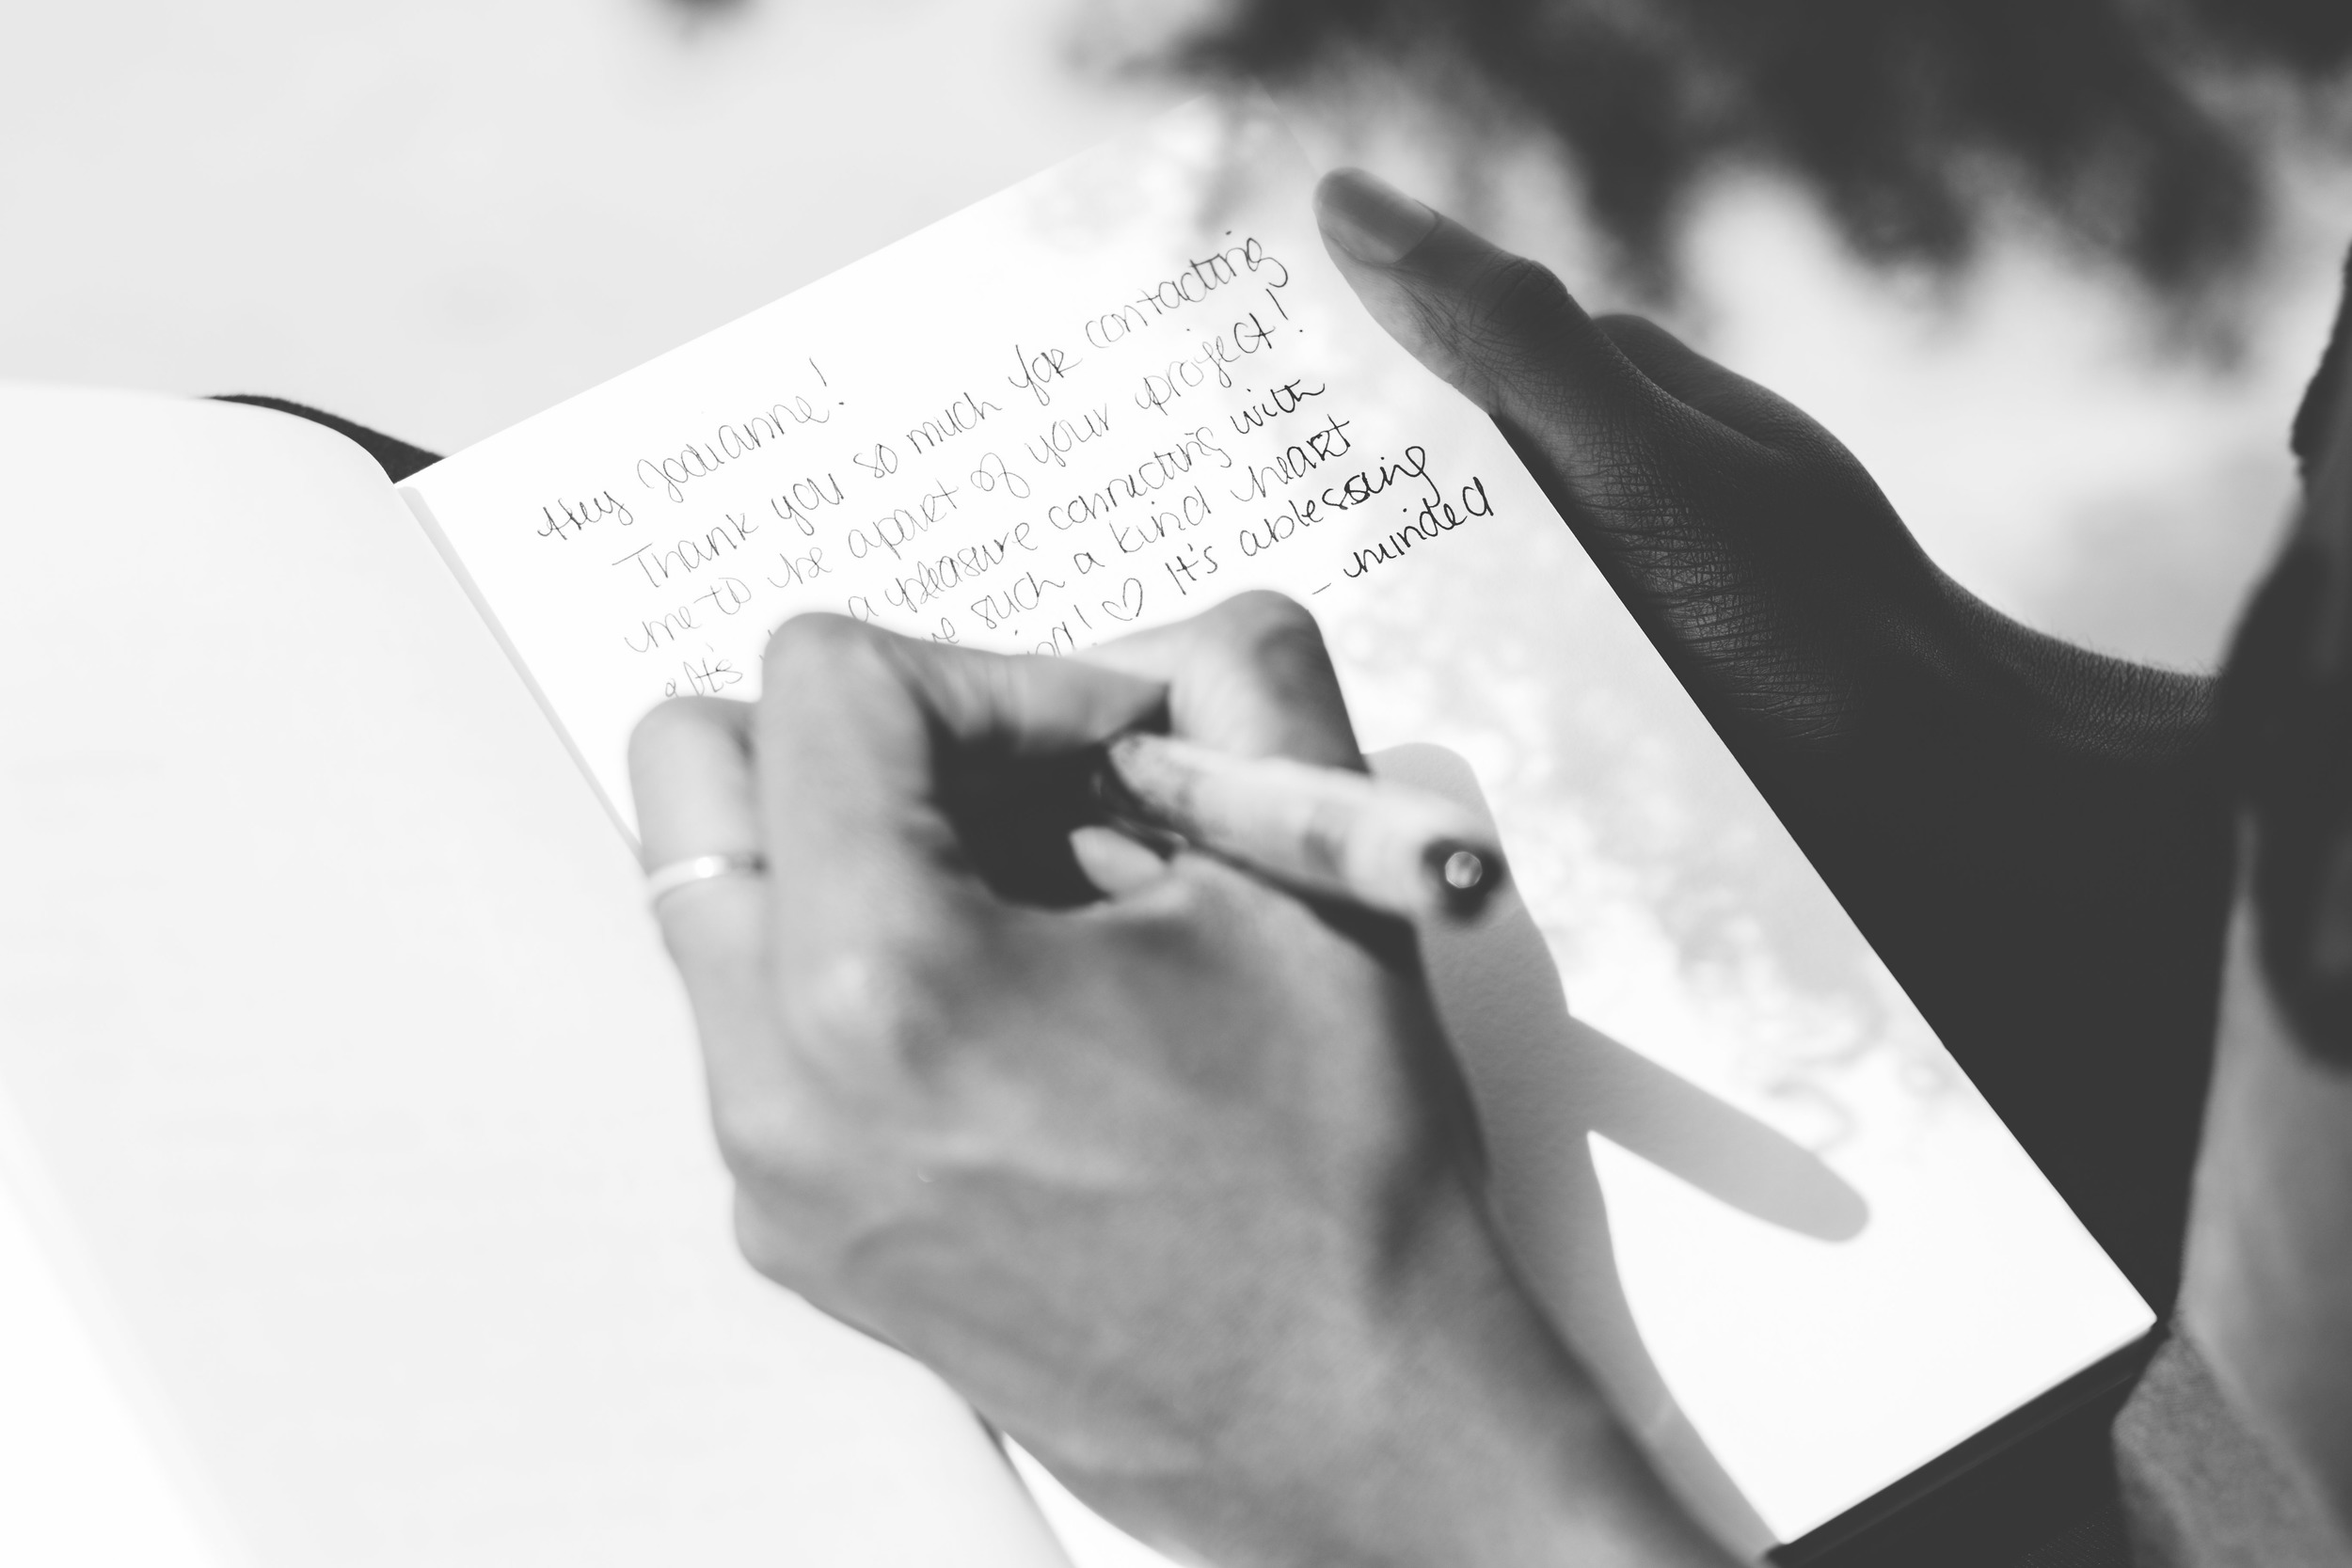 Hey Joouanne!
Thank you so much for contacting
me to be apart of your project!
It's a pleasure connecting with
such a kind heart
♡ It's ablessing
- minded